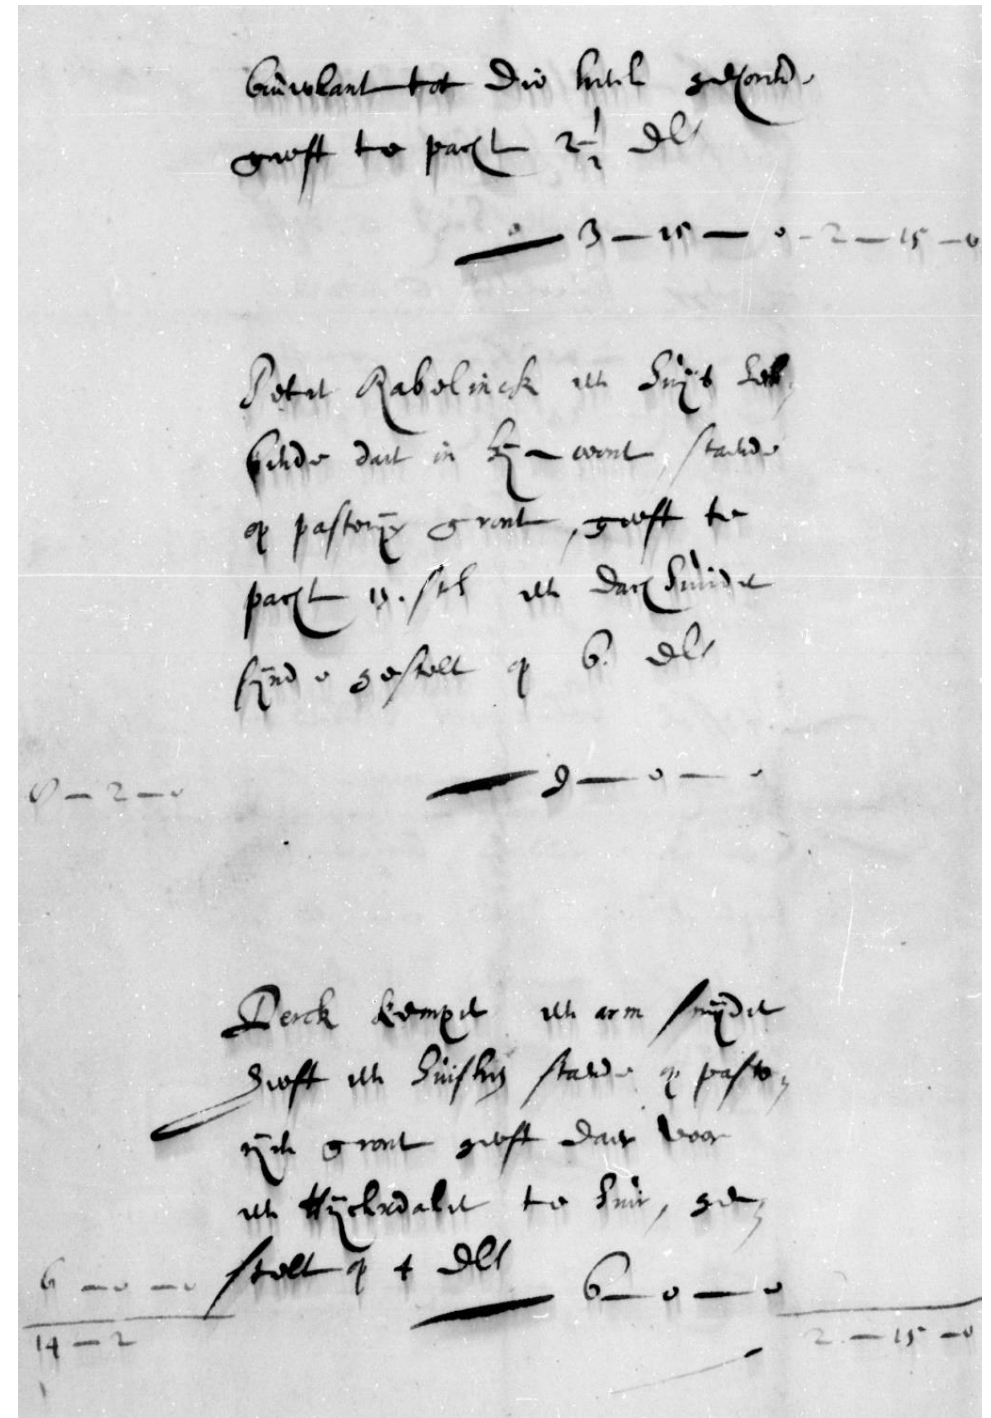 bouwlant tot die kerck gehorende
geeft te pacht 2 1/2 dlr
3 — 15 — 0 - 2 — 15 — 0
Peter Rabelinck een huijs heb,
bende daer in hij woont, staende
op pastorije gront, geeft te
pacht stl een dachhuirder
sijnde gestelt op 6. dlr
8 — 2 — 0
9 — 0 — 0
Derck Kemper een arm snijder
heeft een huisken staende op pasto,
rijen gront geeft daer voor
een Rijcksdaler te huir, ge,
stelt op 4 dlr
6 — 0 — 0
6 — 0 — 0
14 — 2
2 — 15 — 0